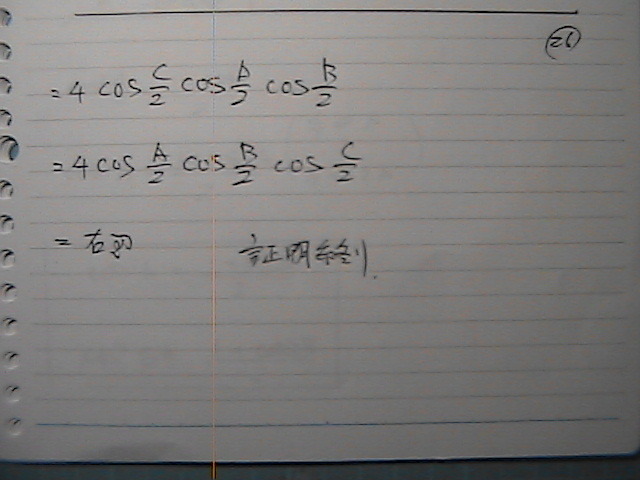 (26)
= 4 cos C/2 cos A/2 cos B/2
= 4 cos A/2 cos B/2 cos C/2
= 右辺 証明終り.